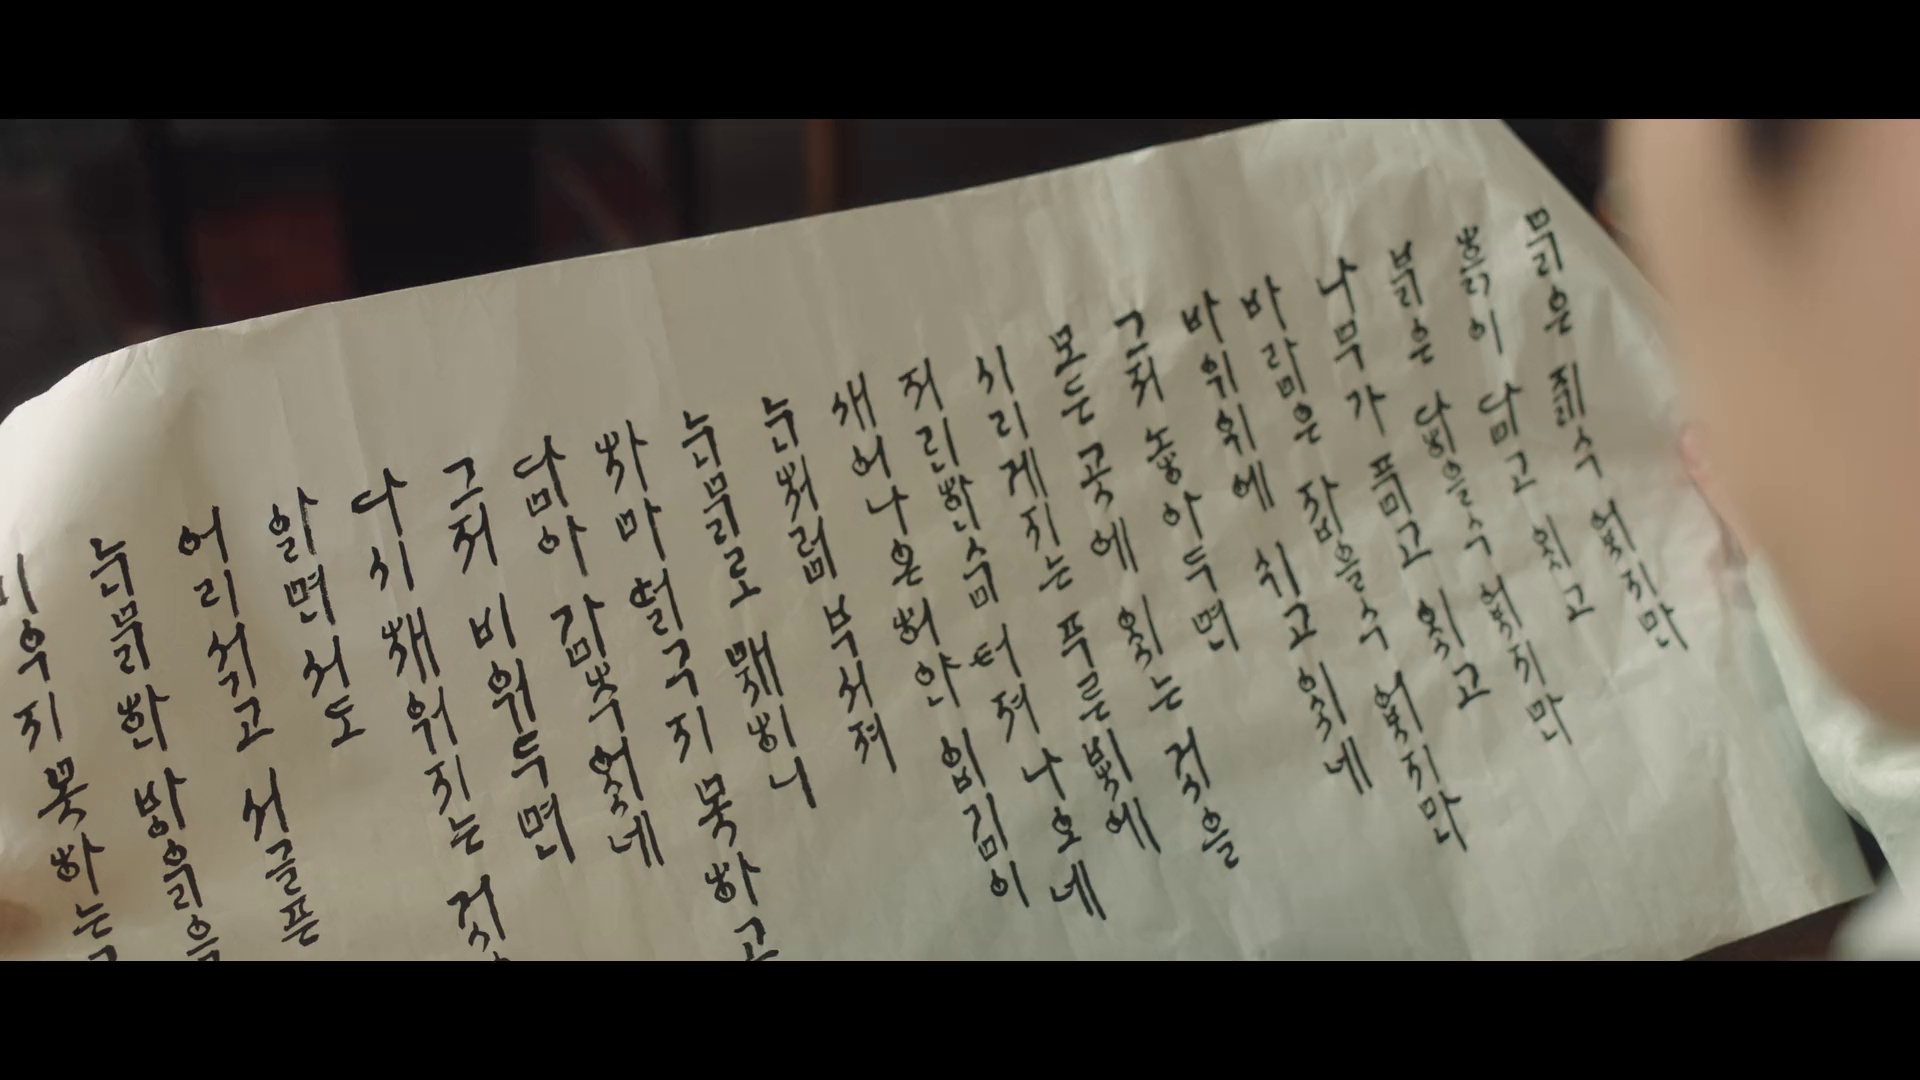 물은 쥘수 없지만
흙이 담고 있고
불은 닿을수 없지만
나무가 품고 있고
바람은 잡을수 없지만
바위위에 쉬고 있네
그저 놓아두면
모든 곳에 있는 것을
시리게지는 푸른빛에
저린한숨 터져 나오네
새어나온 허얀 입김이
눈처럼 부서져
눈물로 맺히니
차마 떨구지 못하고
담아 감추었네
그저 비워두면
다시 채워지는
알면서도
어리석고 서글픈
눈물 한 방울을
비우지 못하는